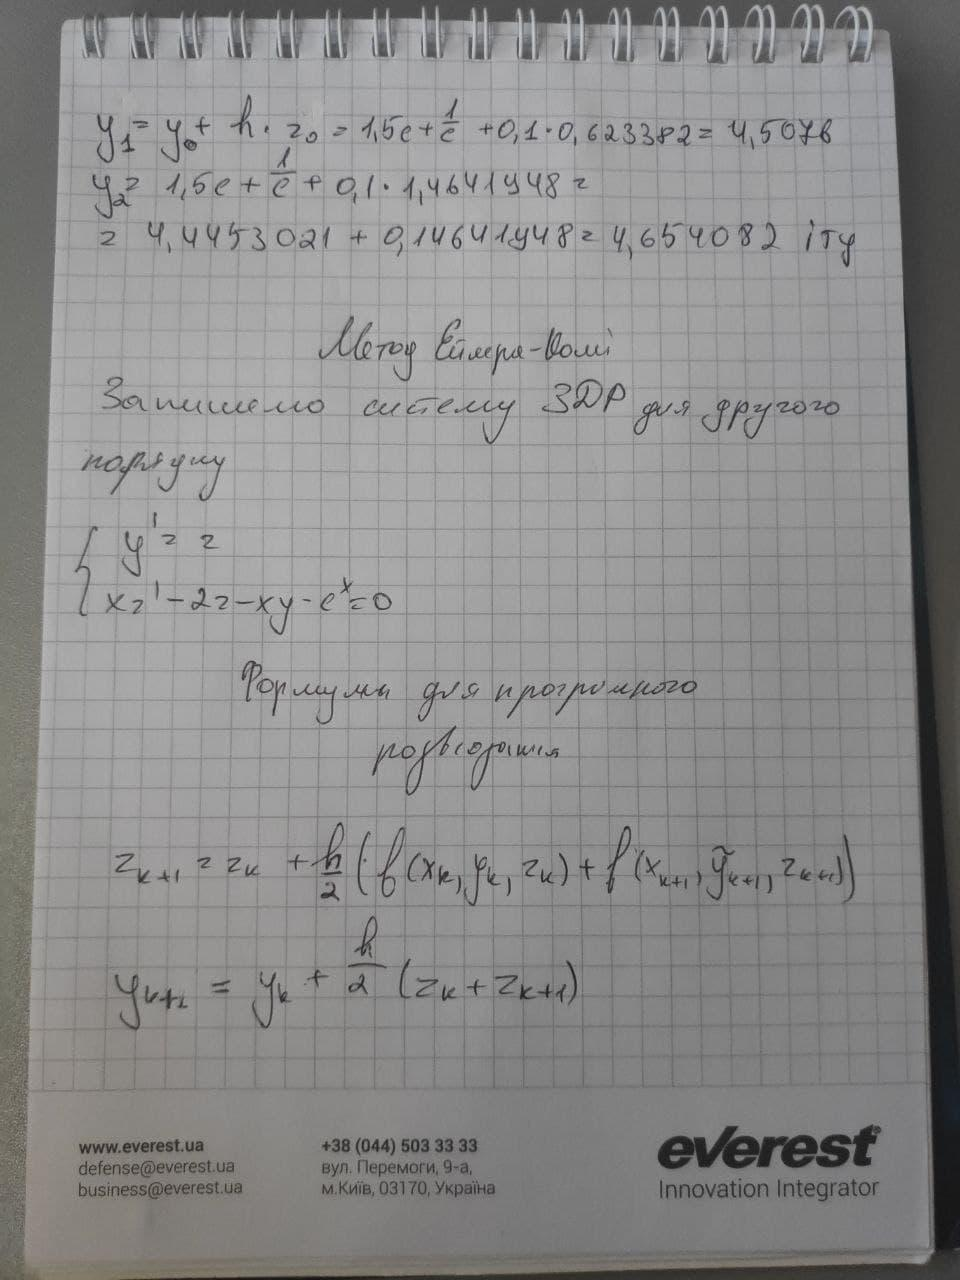 y₁ = y₀ + h · z₀ = 1,5e + 1/e + 0,1 · 0,623382 = 4,5076
y₂ = 1,5e + 1/e + 0,1 · 1,4641948 =
= 4,4453021 + 0,14641948 = 4,654082 іту
Метод Ейлера-Коші
Запишемо систему ЗДР для другого
порядку
{ y' = z
xz' - 2z - xy - eˣ = 0
Формули для програмного
розв'язання
zₖ₊₁ = zₖ + h/2 (f(xₖ, yₖ, zₖ) + f(xₖ₊₁, ỹₖ₊₁, zₖ₊₁))
yₖ₊₁ = yₖ + h/2 (zₖ + zₖ₊₁)
www.everest.ua
defense@everest.ua
business@everest.ua
+38 (044) 503 33 33
вул. Перемоги, 9-а,
м.Київ, 03170, Україна
everest
Innovation Integrator